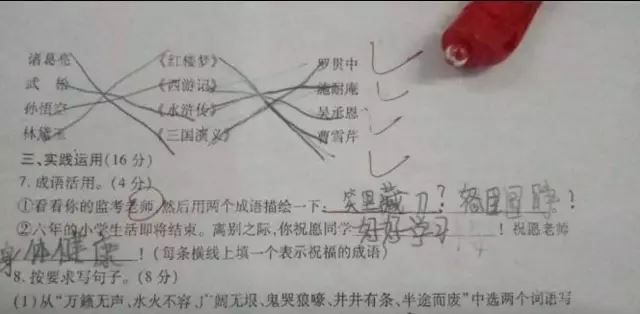 诸葛亮 《红楼梦》 罗贯中
武松 《西游记》 施耐庵
孙悟空 《水浒传》 吴承恩
林黛玉 《三国演义》 曹雪芹
三、实践运用(16分)
7. 成语活用。(4分)
①看看你的监考老师,然后用两个成语描绘一下: 笑里藏刀? 贼眉鼠眼!
②六年的小学生活即将结束。离别之际,你祝愿同学 好好学习 ! 祝愿老师
身体健康 !(每条横线上填一个表示祝福的成语)
8. 按要求写句子。(8分)
(1)从“万籁无声、水火不容、广阔无垠、鬼哭狼嚎、井井有条、半途而废”中选两个词语写